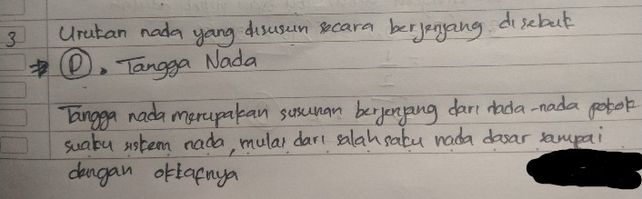 3 Urutan nada yang disusun secara berjenjang disebut
D. Tangga Nada
Tangga nada merupakan susunan berjenjang dari nada-nada pokok
suatu sistem nada, mulai dari salah satu nada dasar sampai
dengan oktafnya